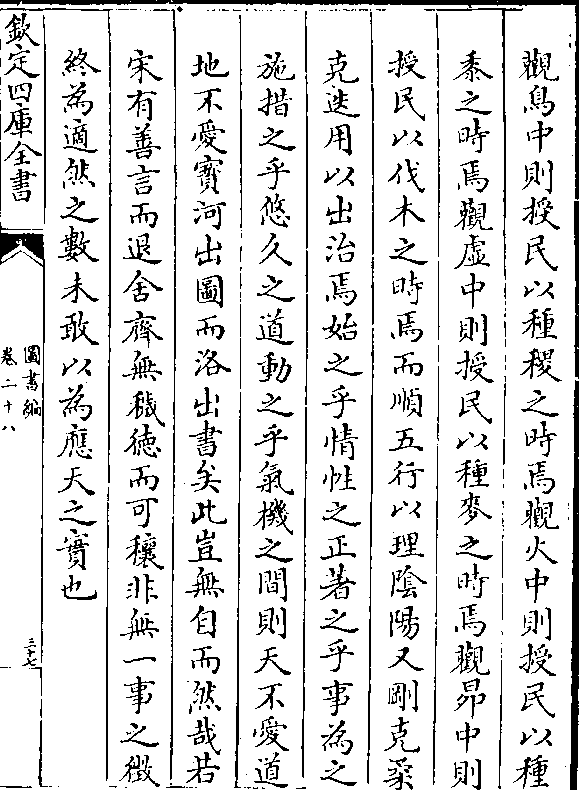 觀鳥中則授民以種稷之時焉觀火中則授民以種
黍之時焉觀虛中則授民以種麥之時焉觀昴中則
授民以伐木之時焉而順五行以理陰陽又剛克柔
克迭用以出治焉始之乎情性之正著之乎事為之
施措之乎悠久之道動之乎氣機之間則天不愛道
地不愛寶河出圖而洛出書矣此豈無自而然哉若
宋有善言而退舍齊無穢徳而可穰非無一事之徴
終為適然之數未敢以為應天之實也
欽定四庫全書
圖書編
卷二十八
三十七